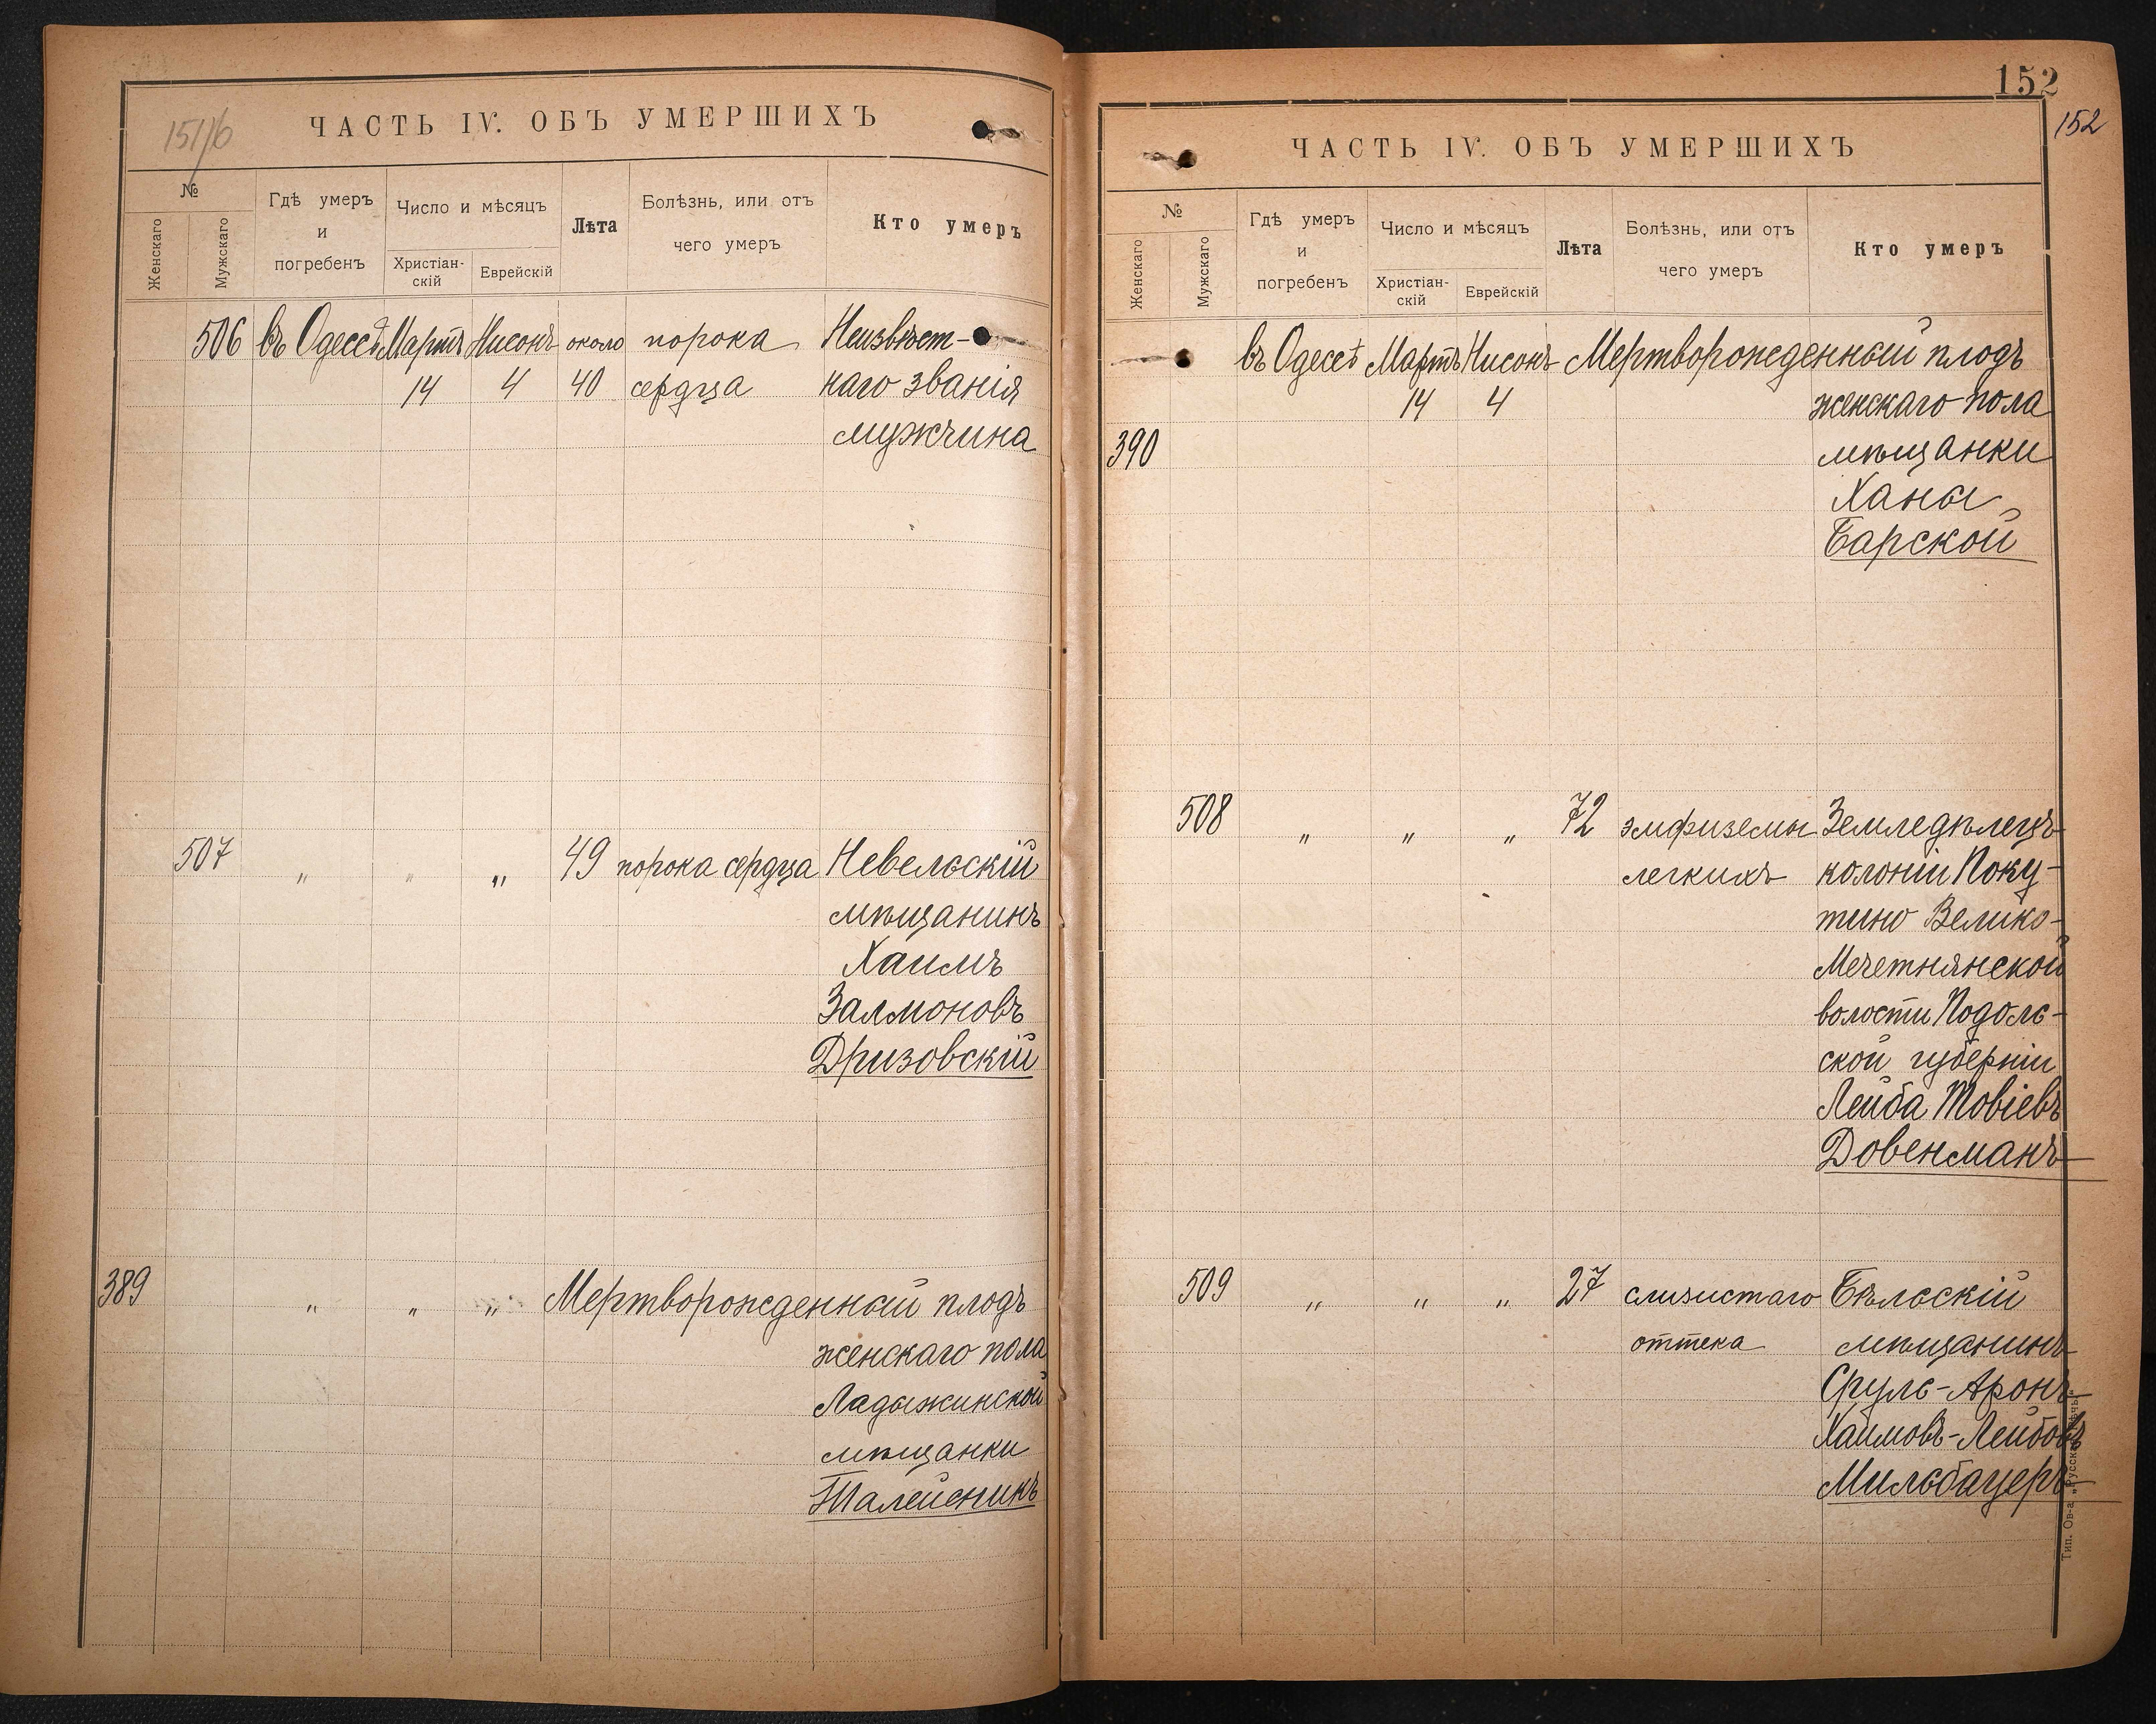 151/б
ЧАСТЬ IV. ОБЪ УМЕРШИХЪ
№
Женскаго
Мужскаго
Гдѣ умеръ
и
погребенъ
Число и мѣсяцъ
Христіан-
скій
Еврейскій
Лѣта
Болѣзнь, или отъ
чего умеръ
Кто умеръ
506 въ Одессѣ Мартъ Нисонъ около порока Неизвѣст-
14 4 40 сердца наго званія
мужчина
507 " " " 49 порока сердца Невельскій
мѣщанинъ
Хаимъ
Залмоновъ
Дризовскій
389 " " " Мертворожденный плодъ
женскаго пола
Ладыжинской
мѣщанки
Талейсникъ
152
152
ЧАСТЬ IV. ОБЪ УМЕРШИХЪ
№
Женскаго
Мужскаго
Гдѣ умеръ
и
погребенъ
Число и мѣсяцъ
Христіан-
скій
Еврейскій
Лѣта
Болѣзнь, или отъ
чего умеръ
Кто умеръ
въ Одессѣ Мартъ Нисонъ Мертворожденный плодъ
14 4 женскаго пола
390 мѣщанки
Ханы
Барской
508 " " " 72 эмфиземы Земледѣлецъ
легкихъ колоніи Поку-
тино Велико-
Мечетнянской
волости Подоль-
ской губерніи
Лейба Товіевъ
Довенманъ
509 " " " 27 слизистаго Бѣльскій
оттека мѣщанинъ
Сруль-Аронъ
Хаимовъ-Лейбовъ
Мильбауеръ
Тип. Ов-а